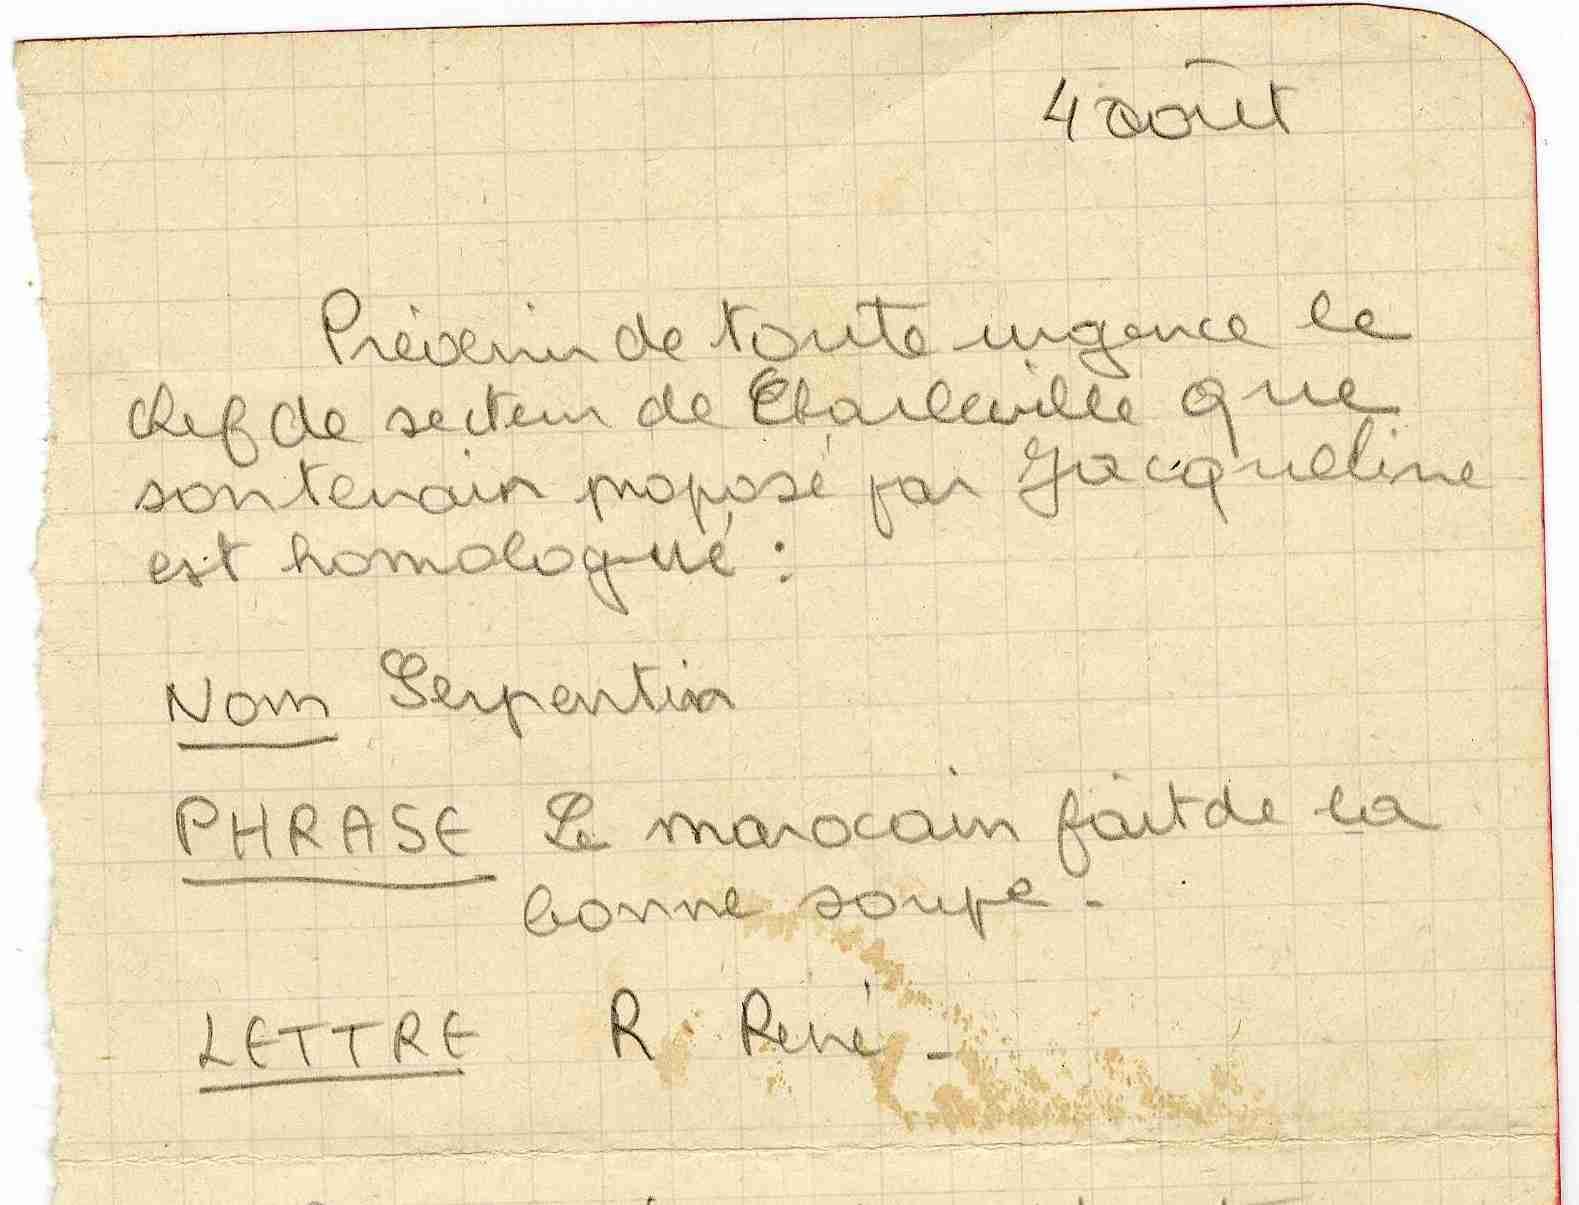 4 août
Prévenir de toute urgence le
chef de secteur de Charleville que
son terrain proposé par Jacqueline
est homologué :
Nom Serpentin
PHRASE Le marocain fait de la
bonne soupe -
LETTRE R René -